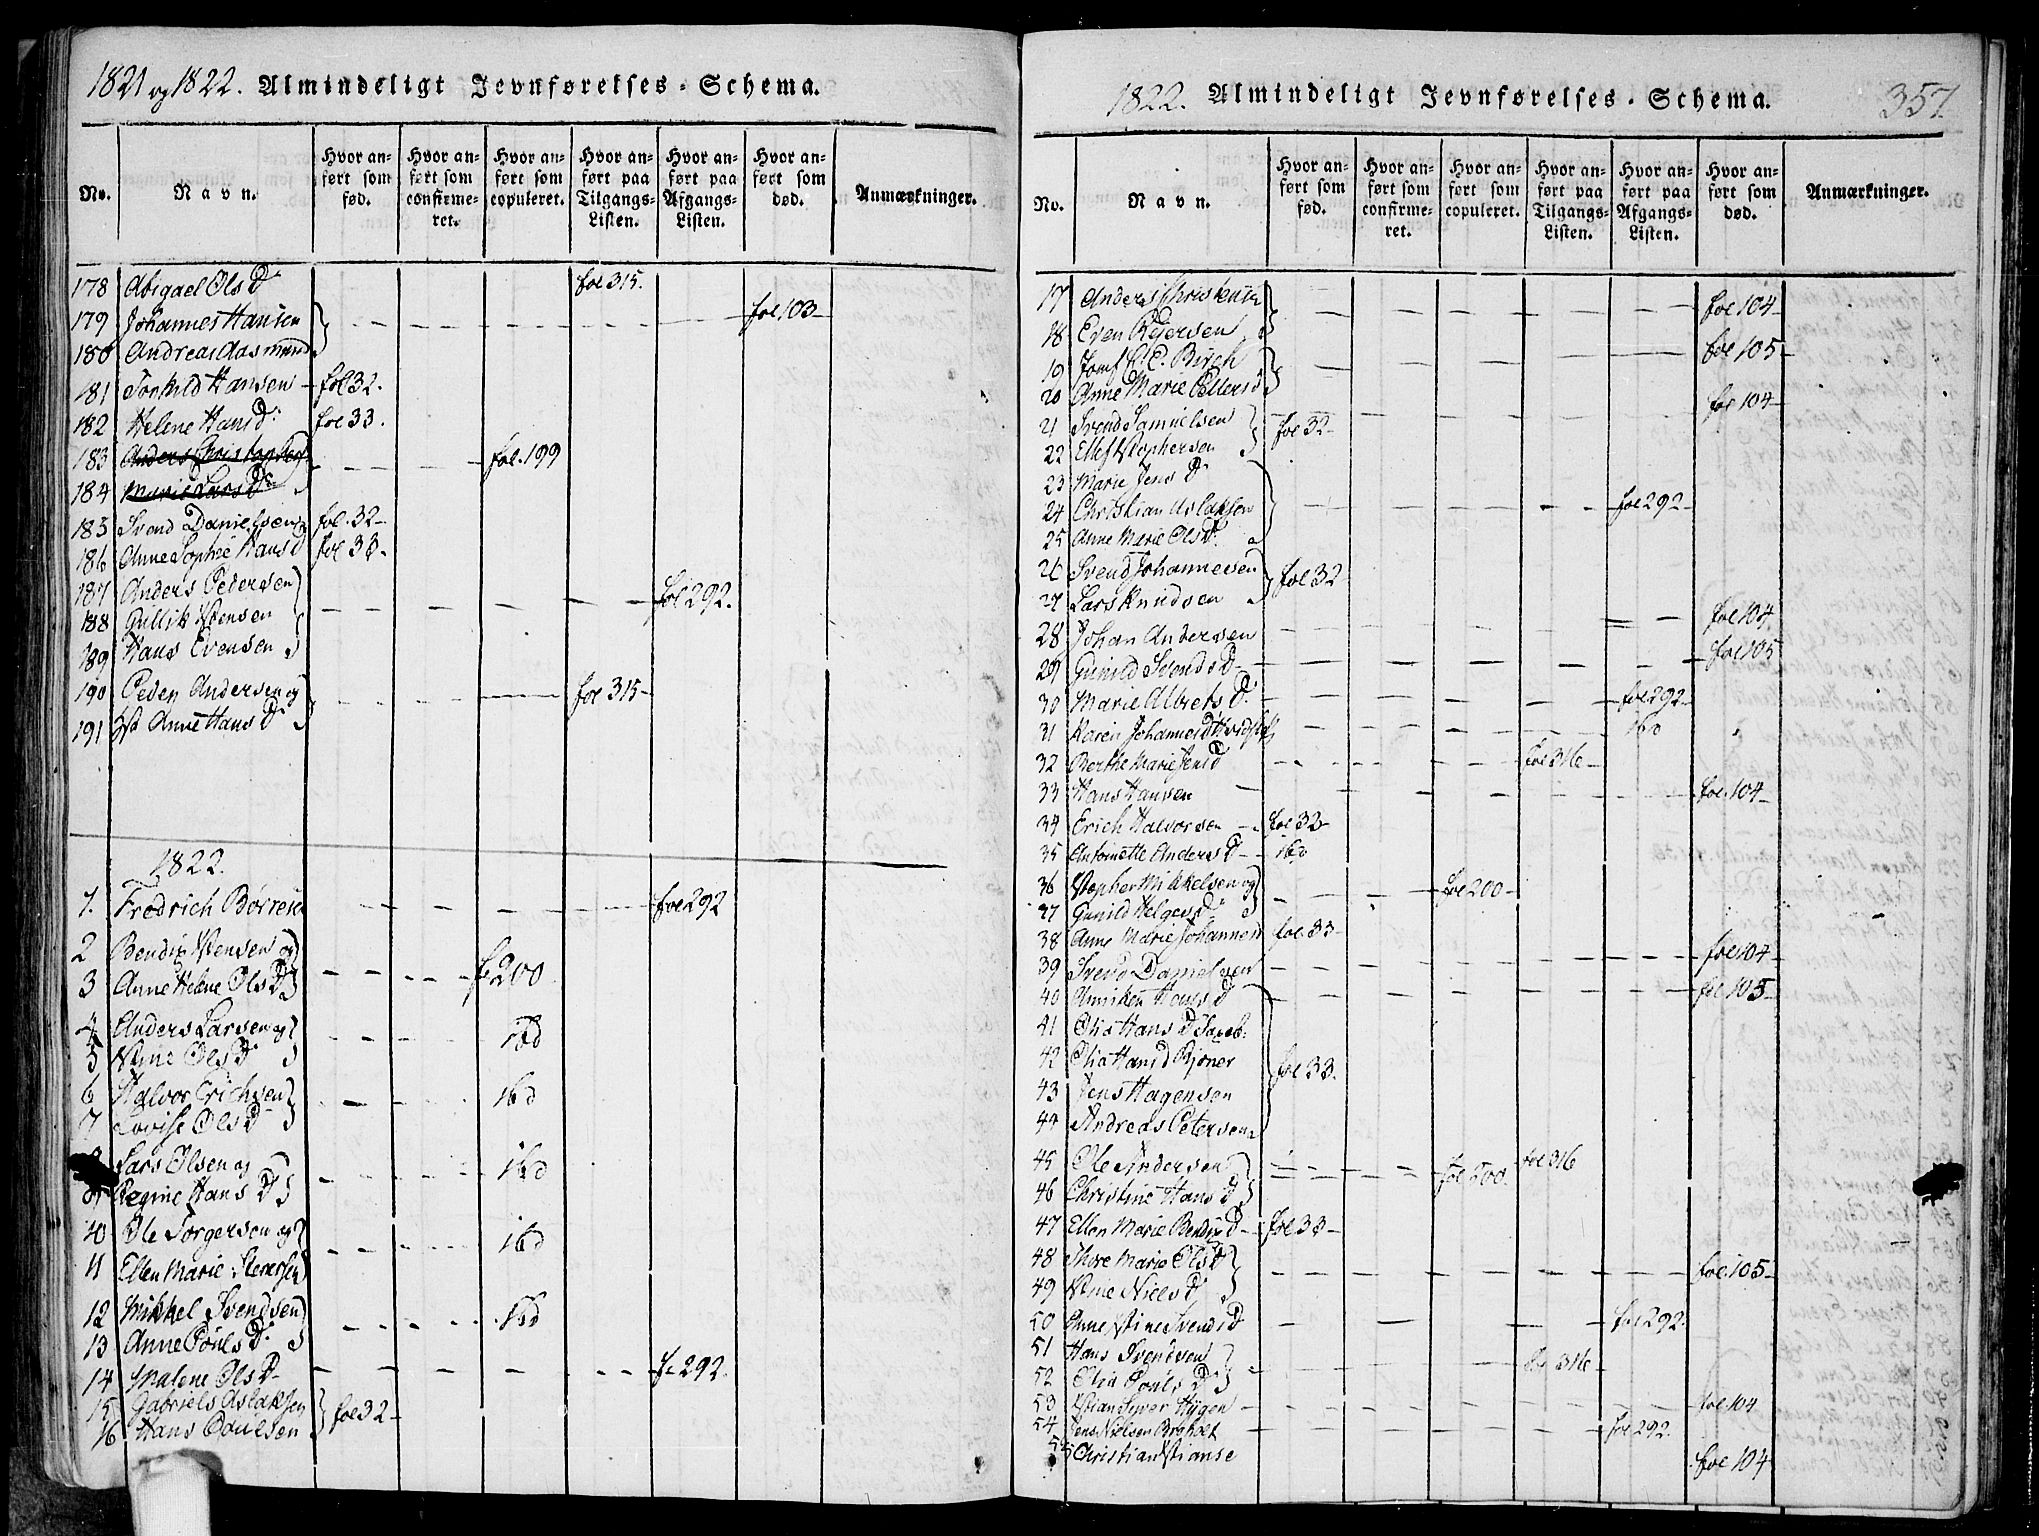 1821 og 1822. Almindeligt Jevnførelses-Schema.
No. Navn. Hvor anført som fød. Hvor anført som confirmeret. Hvor anført som copuleret. Hvor anført paa Tilgangs-Listen. Hvor anført paa Afgangs-Listen. Hvor anført som død. Anmærkninger.
178 Abigael Ols D fol 315.
179 Johannes Hansen
fol 103
180 Andreas Aasmund
181 Torkild Hansen fol 32.
182 Helene Hans D: fol 33.
183 Anders Christophers
fol. 199
184 Marie Lars D
183 Svend Danielsen fol. 32
186 Anne Sophie Hans D fol 33.
187 Anders Pedersen
fol 292.
188 Gullik Stensen
189 Hans Evensen
190 Peder Andersen og
fol 315
191 Anne Hans D
1822.
1. Fredrich Børresen fol 292
2 Bendix Stensen og
f. 200
3 Anne Helene Ols D
4 Anders Larsen og
ibd
5 Stine Ols D
6 Halvor Erichsen
ibd
7 Lovise Ols D
Lars Olsen og
ibd
9 Regine Hans D
10 Ole Torgersen og
ibd
11 Ellen Marie
12 Mikkel Svendsen
ibd
13 Anne Pouls D.
14 Malene Ols D f. 292.
15 Gabriel Aslaksen
fol 32
16 Hans Poulsen
1822. Almindeligt Jevnførelses-Schema. 357.
No. Navn. Hvor anført som fød. Hvor anført som confirmeret. Hvor anført som copuleret. Hvor anført paa Tilgangs-Listen. Hvor anført paa Afgangs-Listen. Hvor anført som død. Anmærkninger.
17 Anders Christensen
fol 104
18 Even Rejersen
19 Jomf C. C. Birch fol 105
20 Anne Marie Petters D
fol 104
21 Svend Samuelsen
fol 32
22 Ellef Stophersen
23 Marie Jens D
24 Christian Aslaksen fol 292
25 Anne Marie Ols D.
26 Svend Johannesen
fol 32
27 Lars Knudsen
28 Johan Andersen fol 104
29 Gunild Svends D fol 105
30 Marie Albrets D. fol 292
31 Karen Johannes D ibd
32 Berthe Marie Jens D fol 316
33 Hans Hansen fol. 104
34 Erich Halvorsen fol 32
35 Antoinette Anders D ibd
36 Stopher Mikkelsen og
fol 200
37 Gunild Helges D
38 Anne Marie Johannesen fol. 33
39 Svend Danielsen fol 104
40 Anniken Hans D fol 105
41 Olia Hans D
42 Olia Hans D Bjoner
fol 33.
43 Jens Hagensen
44 Andreas Petersen
45 Ole Andersen fol 316
fol 200.
46 Christine Hans D
47 Ellen Marie Bendix D fol 33
48 Thore Marie Ols D
fol. 105
49 Stine Niels D
50 Anne Stine Svends D fol 292.
51 Hans Svendsen
fol 316
52 Olia Pouls D
53 Stian Siver Hygen fol. 104
54 Jens Nielsen Broholt fol 292.
55 Christian Stianse fol 104